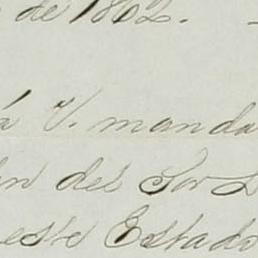 de 1862.
á V. manda
en del Sor D
este Estado